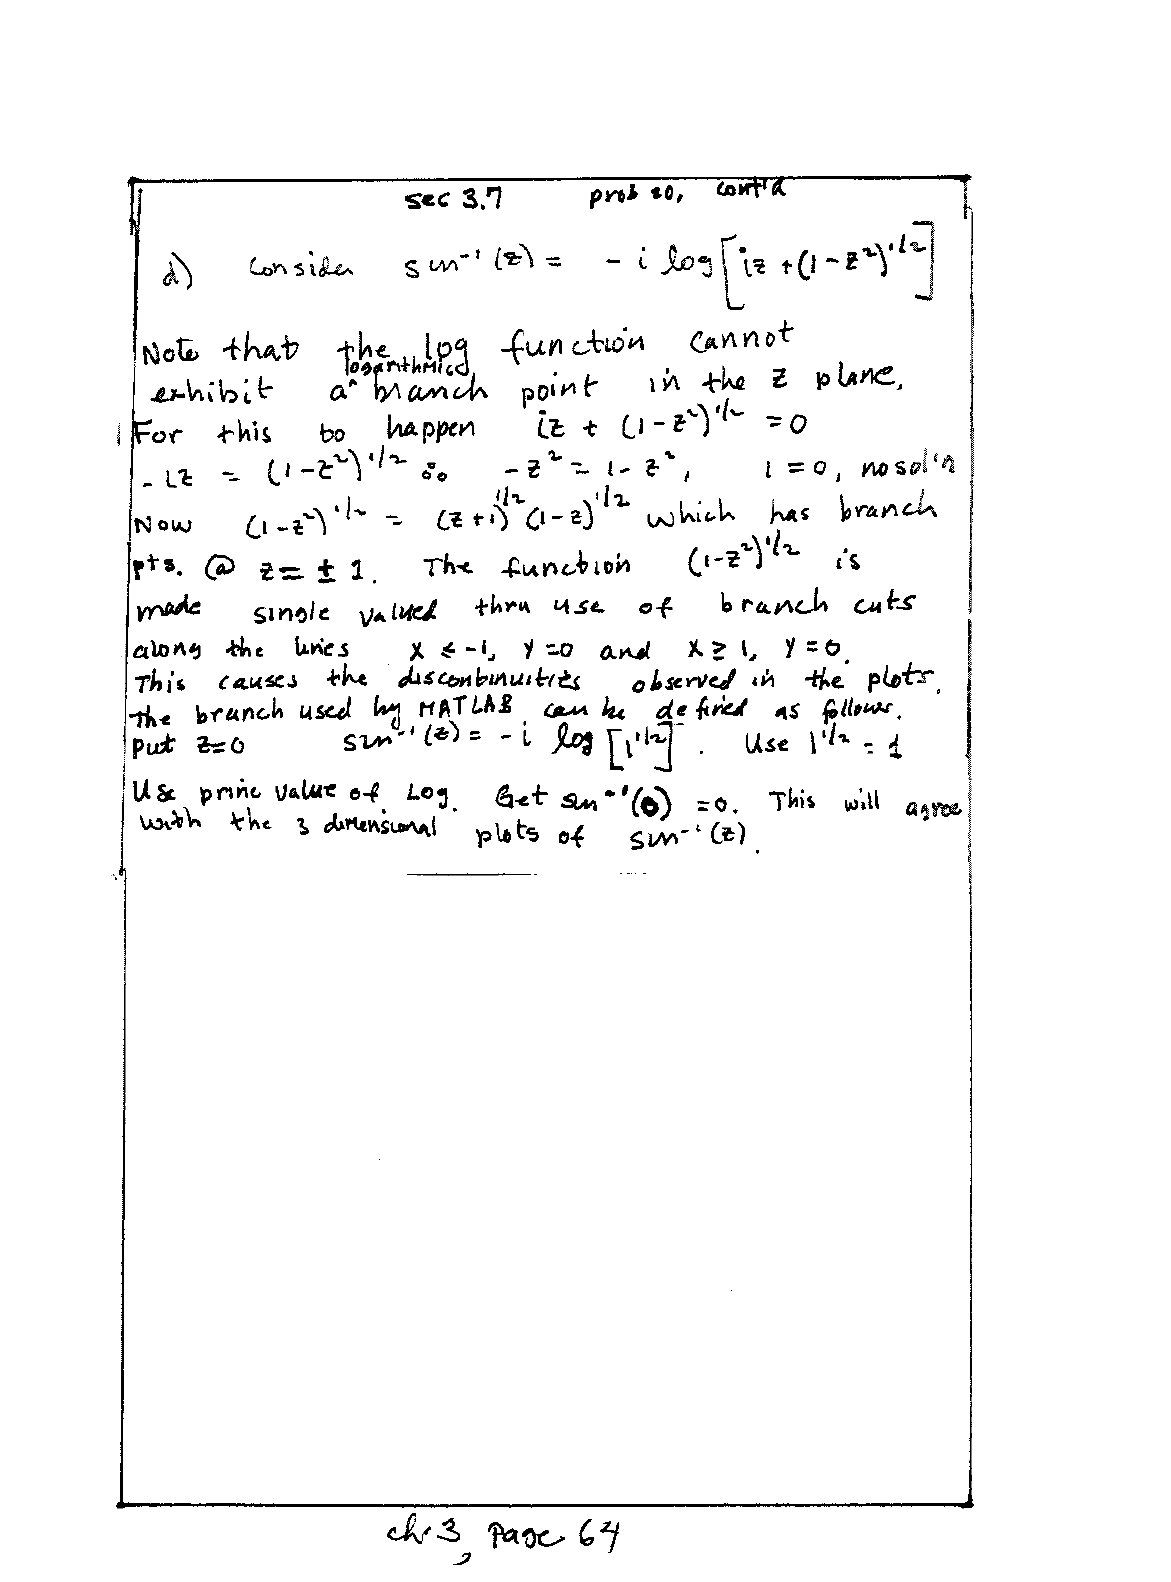 sec 3.7 prob 20, cont'd
d) Consider sin⁻¹(z) = -i log[iz + (1-z²)^1/2]
Note that the log function cannot
exhibit a logarithmic branch point in the z plane.
For this to happen iz + (1-z²)^1/2 = 0
-iz = (1-z²)^1/2 ∴ -z² = 1-z², 1=0, no sol'n
Now (1-z²)^1/2 = (z+1)^1/2 (1-z)^1/2 which has branch
pts. @ z = ± 1. The function (1-z²)^1/2 is
made single valued thru use of branch cuts
along the lines x ≤ -1, y=0 and x ≥ 1, y=0.
This causes the discontinuities observed in the plots.
The branch used by MATLAB can be defined as follows.
Put z=0 sin⁻¹(z) = -i log[1^1/2]. Use 1^1/2 = 1
Use princ value of Log. Get sin⁻¹(0) = 0. This will agree
with the 3 dimensional plots of sin⁻¹(z).
ch. 3, Page 64